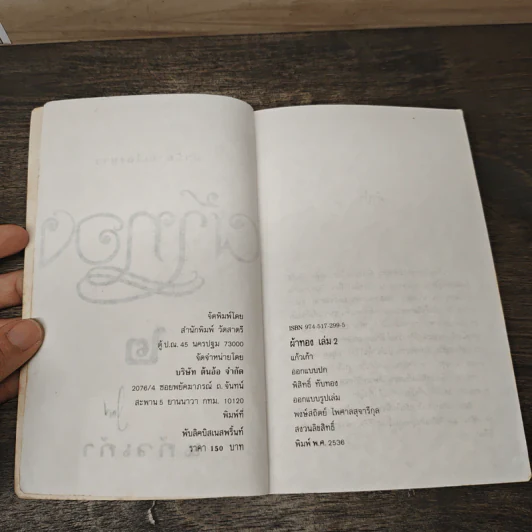 จัดพิมพ์โดย
สำนักพิมพ์ วัดสาตรี
ตู้ ป.ณ. 45 นครปฐม 73000
จัดจำหน่ายโดย
บริษัท ต้นอ้อ จำกัด
2076/4 ซอยพยัคฆาภรณ์ ถ.จันทน์
สะพาน 5 ยานนาวา กทม. 10120
พิมพ์ที่
พับลิคบิสเนสพริ้นท์
ราคา 150 บาท
ISBN 974-517-299-5
ผ้าทอง เล่ม 2
แก้วเก้า
ออกแบบปก
พิสิทธิ์ ทับทอง
ออกแบบรูปเล่ม
พงษ์สถิตย์ ไพศาลสุจารีกุล
สงวนลิขสิทธิ์
พิมพ์ พ.ศ. 2536